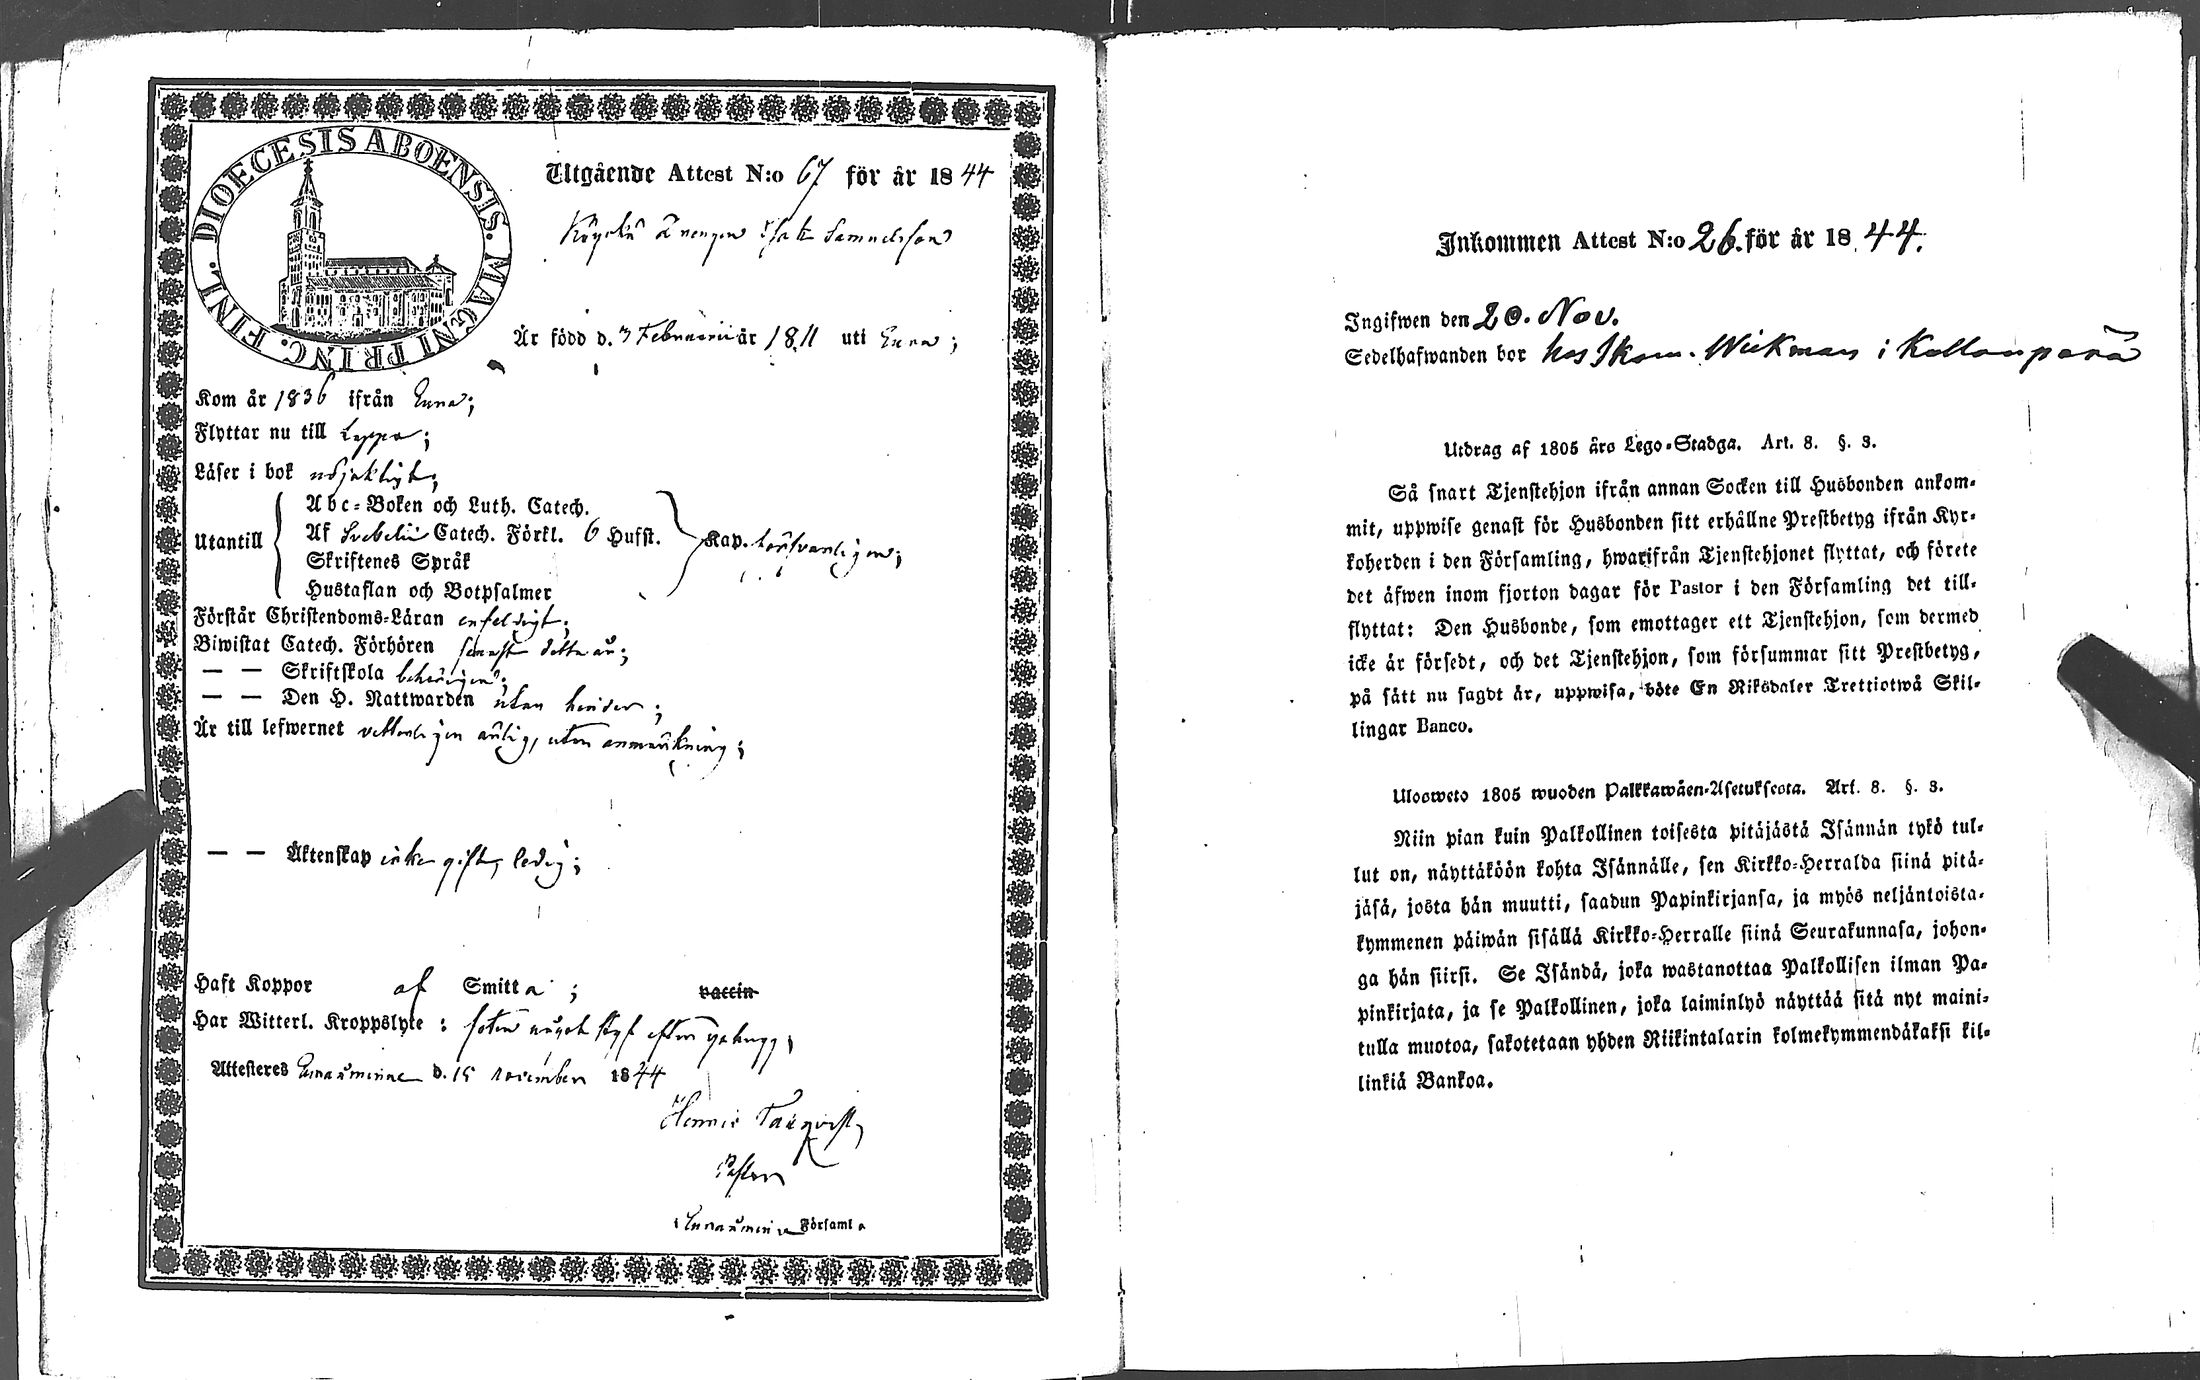 DIOECESIS ABOENSIS. MAGNI PRINC. FINL.
Utgående Attest N:o 67 för år 1844
Drengen Isak Samuelsson
Är född d. 3 Februarii år 1811 uti Eura;
Kom år 1836 ifrån Eura;
Flyttar nu till Lappo;
Läser i bok nöjaktigt;
Abc-Boken och Luth. Catech.
Utantill Af Svebelii Catech. Förkl. 6 Hufst. Kap. försvarligen;
Skriftenes Språk
Hustaflan och Botpsalmer
Förstår Christendoms-Läran enfeldigt;
Biwistat Catech. Förhören senast detta år;
— — Skriftskola behörigen;
— — Den H. Nattwarden utan hinder;
Är till lefwernet vetterligen ärlig, utan anmärkning;
— — Äktenskap icke gift, ledig;
Haft Koppor af Smitta; vaccin
Har Witterl. Kroppslyte: foten något styf efter yxhugg;
Attesteres Euraåminne d. 15 november 1844
Henric
Pastor
i Euraåminne Församl
Inkommen Attest N:o 26. för år 1844.
Ingifwen den 20. Nov.
Sedelhafwanden bor hos Wickman i
Utdrag af 1805 års Lego-Stadga. Art. 8. §. 3.
Så snart Tjenstehjon ifrån annan Socken till Husbonden ankom-
mit, uppwise genast för Husbonden sitt erhållne Prestbetyg ifrån Kyr-
koherden i den Församling, hwarifrån Tjenstehjonet flyttat, och förete
det äfwen inom fjorton dagar för Pastor i den Församling det till-
flyttat: Den Husbonde, som emottager ett Tjenstehjon, som dermed
icke är försedt, och det Tjenstehjon, som försummar sitt Prestbetyg,
på sätt nu sagdt är, uppwisa, böte En Riksdaler Trettiotwå Skil-
lingar Banco.
Ulosweto 1805 wuoden Palkkawäen-Asetuksesta. Art. 8. §. 3.
Niin pian kuin Palkollinen toisesta pitäjästä Isännän tykö tul-
lut on, näyttäköön kohta Isännälle, sen Kirkko-Herralda siinä pitä-
jäsä, josta hän muutti, saadun Papinkirjansa, ja myös neljäntoista-
kymmenen päiwän sisällä Kirkko-Herralle siinä Seurakunnasa, johon-
ga hän siirsi. Se Isändä, joka wastanottaa Palkollisen ilman Pa-
pinkirjata, ja se Palkollinen, joka laiminlyö näyttää sitä nyt maini-
tulla muotoa, sakotetaan yhden Riikintalarin kolmekymmendäkaksi kil-
linkiä Bankoa.